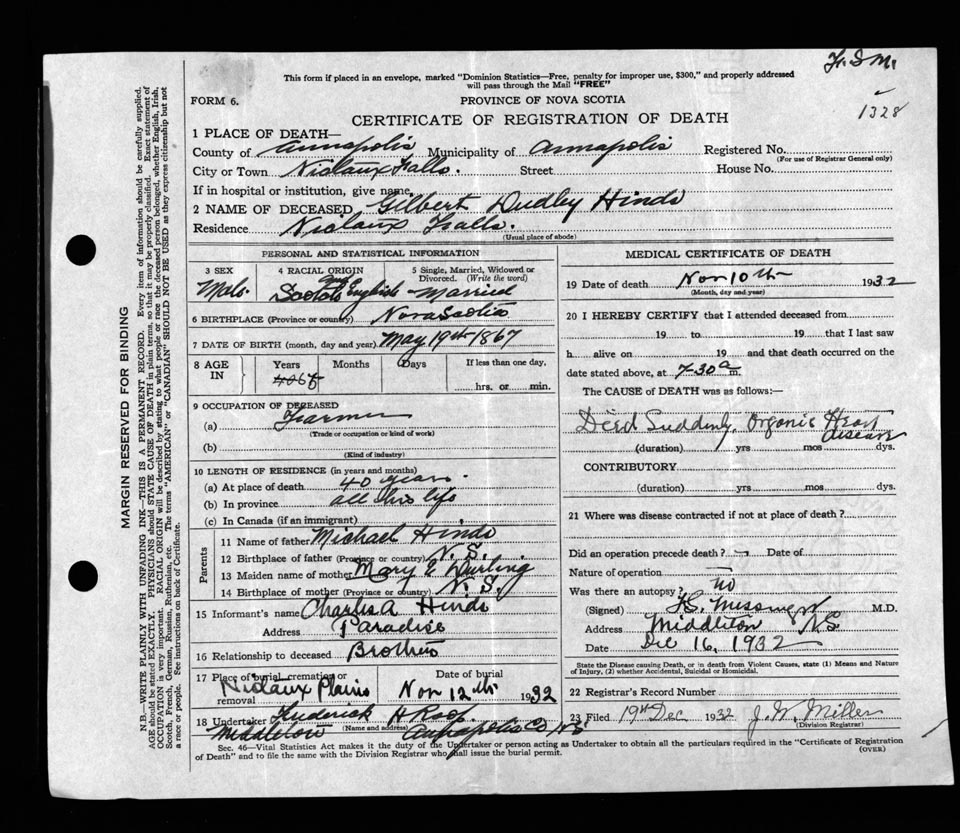 Fr. S M.
This form if placed in an envelope, marked "Dominion Statistics—Free, penalty for improper use, $300," and properly addressed
will pass through the Mail "FREE"
1328
FORM 6.
PROVINCE OF NOVA SCOTIA
CERTIFICATE OF REGISTRATION OF DEATH
1 PLACE OF DEATH—
County of Annapolis Municipality of Annapolis Registered No.
(For use of Registrar General only)
City or Town Niclaux Falls. Street House No.
If in hospital or institution, give name
2 NAME OF DECEASED Gilbert Dudley Hinds
Residence Niclaux Falls.
(Usual place of abode)
PERSONAL AND STATISTICAL INFORMATION
3 SEX
Male.
4 RACIAL ORIGIN
Scotch and English
5 Single, Married, Widowed or Divorced. (Write the word)
Married
6 BIRTHPLACE (Province or country) Nova Scotia
7 DATE OF BIRTH (month, day and year) May 19th 1867
8 AGE IN
Years Months Days If less than one day,
hrs. or min.
9 OCCUPATION OF DECEASED
(a) Farmer
(Trade or occupation or kind of work)
(b)
(Kind of industry)
10 LENGTH OF RESIDENCE (in years and months)
(a) At place of death 40 years.
(b) In province all his life
(c) In Canada (if an immigrant)
Parents
11 Name of father Michael Hinds
12 Birthplace of father (Province or country) N. S.
13 Maiden name of mother Mary E Durling
14 Birthplace of mother (Province or country) N. S.
15 Informant's name Charles A Hinds
Address Paradise
16 Relationship to deceased Brother
17 Place of burial, cremation or removal Date of burial
Niclaux Plains Nov 12th 1932
18 Undertaker Frederick A Roop
Middleton (Name and address) Annapolis Co NS
MEDICAL CERTIFICATE OF DEATH
19 Date of death Nov 10th 1932
(Month, day and year)
20 I HEREBY CERTIFY that I attended deceased from
19 to 19 that I last saw
h alive on 19 and that death occurred on the
date stated above, at 7-30 a m.
The CAUSE of DEATH was as follows:—
Died Suddenly. Organic Heart
disease
(duration) yrs mos dys.
CONTRIBUTORY
(duration) yrs mos dys.
21 Where was disease contracted if not at place of death?
Did an operation precede death? Date of
Nature of operation
Was there an autopsy? no
(Signed) Messenger M.D.
Address Middleton NS
Date Dec 16, 1932
State the Disease causing Death, or in death from Violent Causes, state (1) Means and Nature
of Injury, (2) whether Accidental, Suicidal or Homicidal.
22 Registrar's Record Number
23 Filed 19th Dec 1932 J. W. Miller
(Division Registrar)
Sec. 46—Vital Statistics Act makes it the duty of the Undertaker or person acting as Undertaker to obtain all the particulars required in the "Certificate of Registration
of Death" and to file the same with the Division Registrar who shall issue the burial permit.
(OVER)
MARGIN RESERVED FOR BINDING
N.B.—WRITE PLAINLY WITH UNFADING INK—THIS IS A PERMANENT RECORD. Every item of information should be carefully supplied.
AGE should be stated EXACTLY. PHYSICIANS should STATE CAUSE OF DEATH in plain terms, so that it may be properly classified. Exact statement of
OCCUPATION is very important. RACIAL ORIGIN will be described by stating to what people or race the deceased person belonged, whether English, Irish,
Scotch, French, German, Russian, Ruthenian, etc. The terms "AMERICAN" or "CANADIAN" SHOULD NOT BE USED as they express citizenship but not
a race or people. See instructions on back of Certificate.